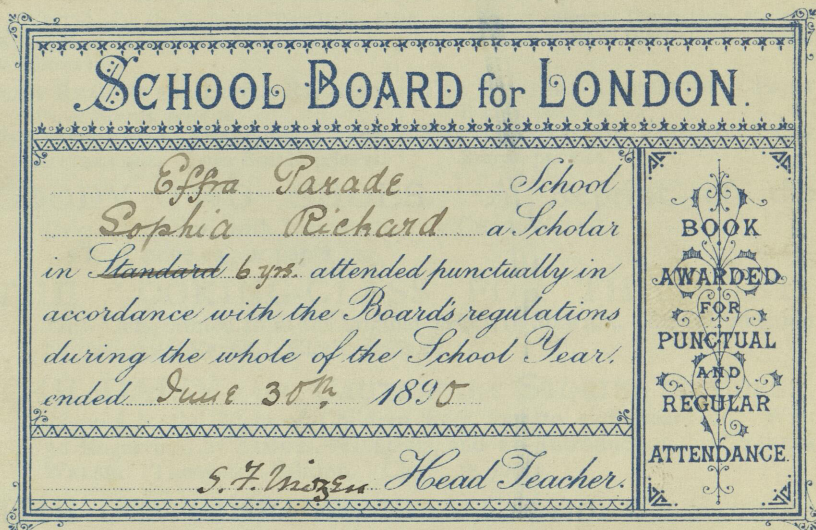 SCHOOL BOARD for LONDON.
Effra Parade School
Sophia Richard a Scholar
in Standard 6 yrs. attended punctually in
accordance with the Board's regulations
during the whole of the School Year,
ended June 30th 1890
S. F. Head Teacher.
BOOK
AWARDED
FOR
PUNCTUAL
AND
REGULAR
ATTENDANCE.